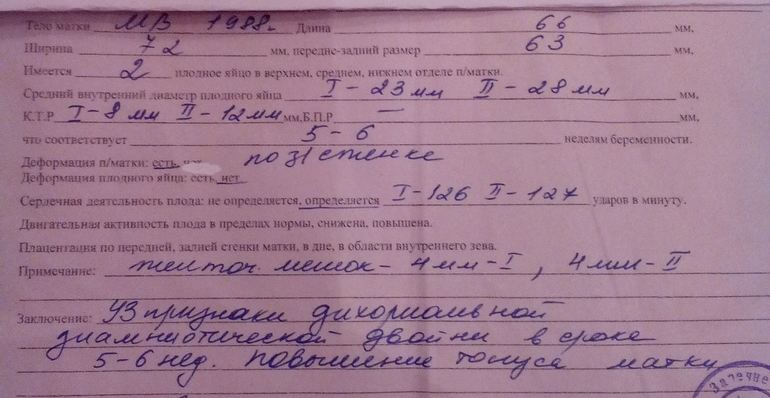 Тело матки МВ 1988г. Длина 66 мм,
Ширина 72 мм, передне-задний размер 63 мм,
Имеется 2 плодное яйцо в верхнем, среднем, нижнем отделе п/матки.
Средний внутренний диаметр плодного яйца I - 23 мм II - 28 мм мм,
К.Т.Р I - 8 мм II - 12 мм мм, Б.П.Р — мм,
что соответствует 5-6 неделям беременности.
Деформация п/матки: есть, нет по з/стенке
Деформация плодного яйца: есть, нет.
Сердечная деятельность плода: не определяется, определяется I - 126 II - 127 ударов в минуту.
Двигательная активность плода в пределах нормы, снижена, повышена.
Плацентация по передней, задней стенки матки, в дне, в области внутреннего зева.
Примечание: желточ. мешок - 4мм - I, 4мм - II
Заключение: УЗ признаки дихориальной
диамниотической двойни в сроке
5-6 нед. Повышение тонуса матки